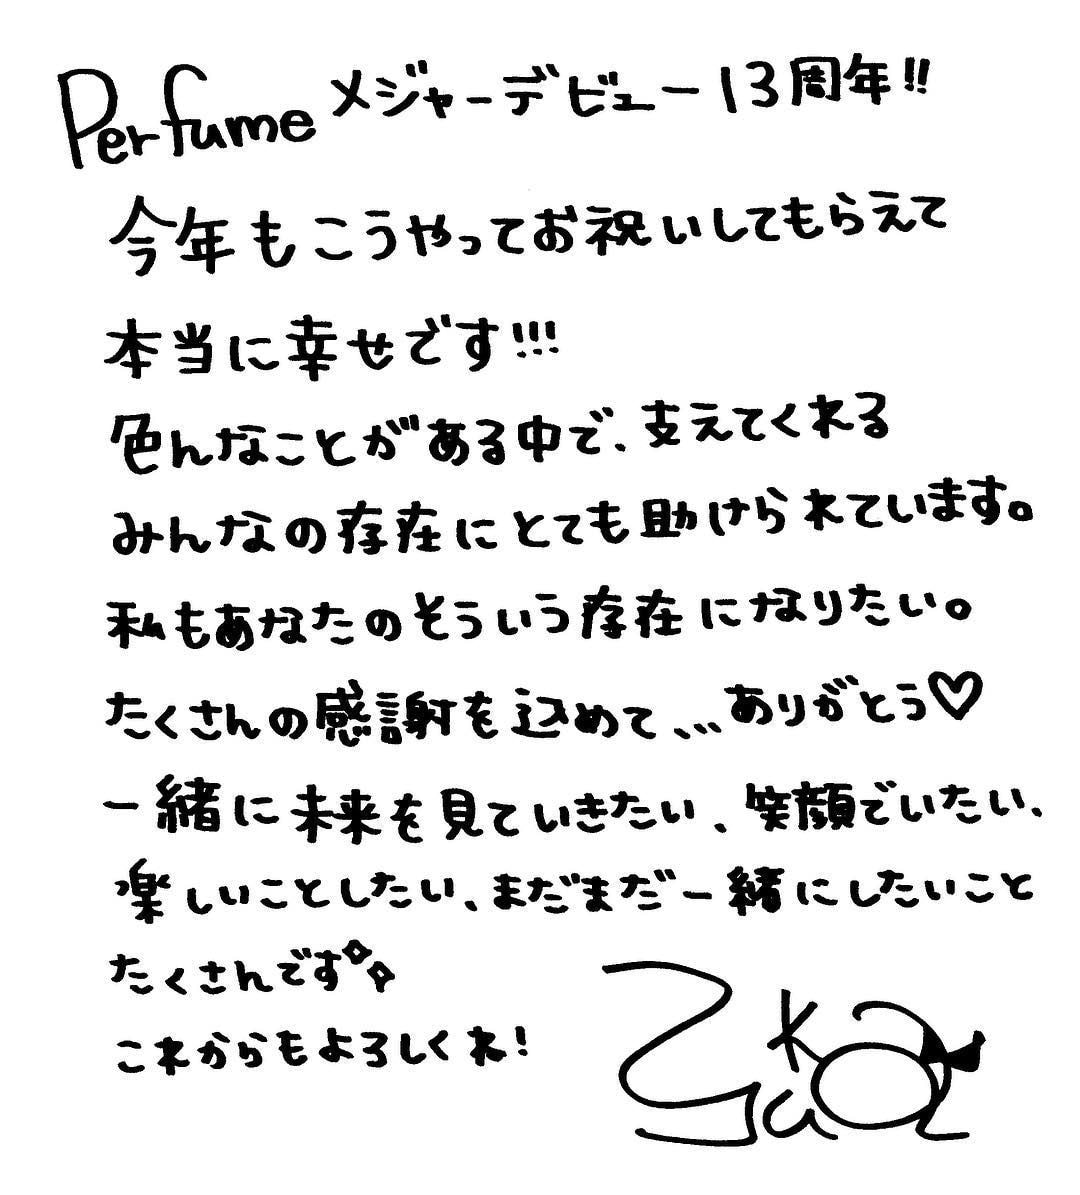 Perfume メジャーデビュー13周年!!
今年もこうやってお祝いしてもらえて
本当に幸せです!!!
色んなことがある中で、支えてくれる
みんなの存在にとても助けられています。
私もあなたのそういう存在になりたい。
たくさんの感謝を込めて、、、ありがとう♡
一緒に未来を見ていきたい、笑顔でいたい、
楽しいことしたい、まだまだ一緒にしたいこと
たくさんです✧✧
これからもよろしくね!